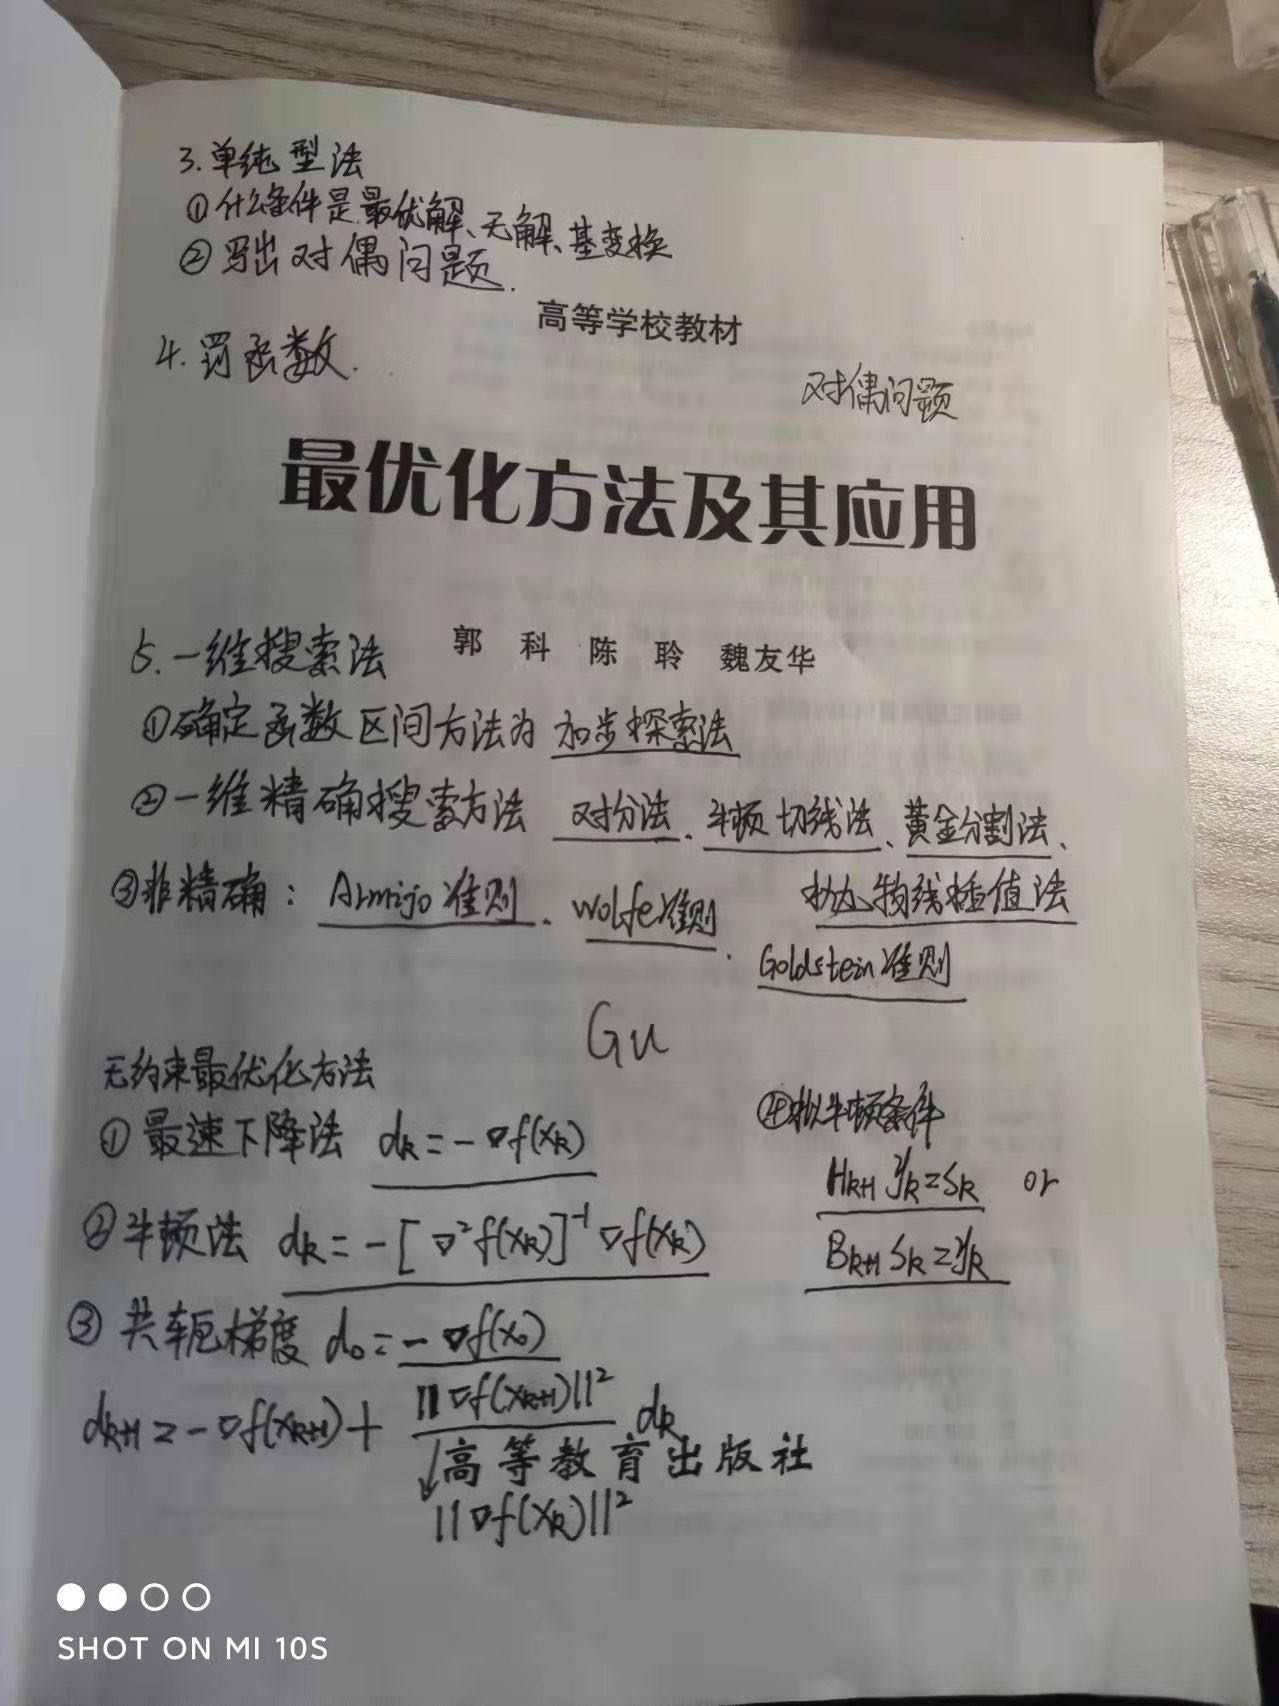 3.单纯型法
①什么条件是最优解、无解、基变换
②写出对偶问题.
高等学校教材
4.罚函数.
对偶问题
最优化方法及其应用
郭 科 陈 聆 魏友华
5.一维搜索法
①确定函数区间方法为 加步探索法
②一维精确搜索方法 对分法、牛顿切线法、黄金分割法、
抛物线插值法
③非精确: Armijo准则、Wolfe准则、
Goldstein准则
Gu
无约束最优化方法
①最速下降法 dk=-∇f(xk)
②牛顿法 dk=-[∇²f(xk)]⁻¹∇f(xk)
③共轭梯度 d₀=-∇f(x₀)
dk+1=-∇f(xk+1)+ ||∇f(xk+1)||² dk
↓
||∇f(xk)||²
④拟牛顿条件
Hk+1 yk=sk or
Bk+1 sk=yk
高等教育出版社
SHOT ON MI 10S